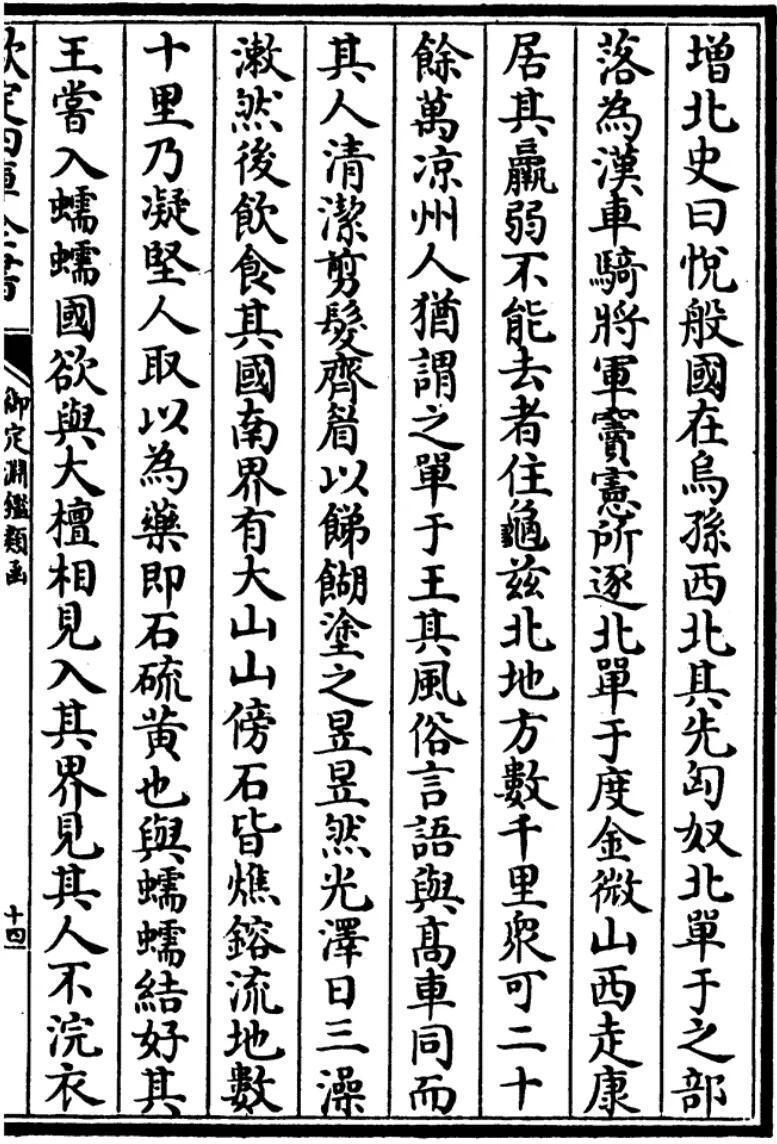 増北史曰悅般國在烏孫西北其先匈奴北單于之部
落為漢車騎將軍竇憲所逐北單于度金微山西走康
居其羸弱不能去者住龜茲北地方數千里衆可二十
餘萬凉州人猶謂之單于王其風俗言語與髙車同而
其人清潔剪髮齊眉以餳餬塗之昱昱然光澤日三澡
漱然後飲食其國南界有大山山傍石皆燋鎔流地數
十里乃凝堅人取以為藥即石硫黄也與蠕蠕結好其
王嘗入蠕蠕國欲與大檀相見入其界見其人不浣衣
欽定四庫全書
御定淵鑑類函
十四